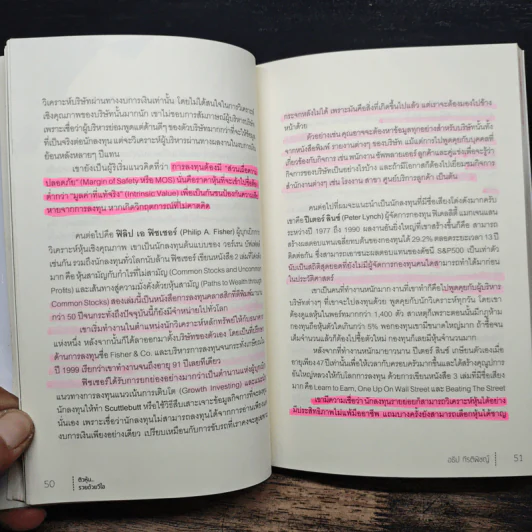 วิเคราะห์บริษัทผ่านทางงบการเงินเท่านั้น โดยไม่ได้สนใจในการวิเคราะห์
เชิงคุณภาพของบริษัทนั้นมากนัก เขาไม่ชอบการสัมภาษณ์ผู้บริหารบริษัท
เพราะเชื่อว่าผู้บริหารย่อมพูดแต่ด้านดีๆ ของตัวบริษัทมากกว่าที่จะให้ข้อมูล
ที่เป็นจริงต่อนักลงทุน แต่จะวิเคราะห์ผู้บริหารผ่านทางผลงานในงบการเงิน
ย้อนหลังหลายๆ ปีแทน
เขายังเป็นผู้ริเริ่มแนวคิดที่ว่า การลงทุนต้องมี "ส่วนเผื่อความ
ปลอดภัย" (Margin of Safety หรือ MOS) นั่นคือราคาหุ้นที่จะเข้าไปซื้อต้อง
ต่ำกว่า "มูลค่าที่แท้จริง" (Intrinsic Value) เพื่อเป็นกันชนป้องกันความเสีย
หายจากการลงทุน หากเกิดวิกฤตการณ์ที่คาดไม่ถึง
คนต่อไปคือ ฟิลิป เอ ฟิชเชอร์ (Philip A. Fisher) ผู้บุกเบิกการ
วิเคราะห์หุ้นเชิงคุณภาพ เขาเป็นนักลงทุนต้นแบบของ วอร์เรน บัฟเฟตต์
เช่นกัน รวมถึงนักลงทุนทั่วโลกนับล้าน ฟิชเชอร์ เขียนหนังสือ 2 เล่มที่โด่งดัง
มาก คือ หุ้นสามัญกับกำไรที่ไม่สามัญ (Common Stocks and Uncommon
Profits) และเส้นทางสู่ความมั่งคั่งด้วยหุ้นสามัญ (Paths to Wealth through
Common Stocks) สองเล่มนี้เป็นหนังสือการลงทุนคลาสสิกที่ตีพิมพ์มา
กว่า 50 ปีจนกระทั่งถึงปัจจุบันนี้ก็ยังมีจำหน่ายไปทั่วโลก
เขาเริ่มทำงานในตำแหน่งนักวิเคราะห์หลักทรัพย์ให้กับธนาคาร
แห่งหนึ่ง หลังจากนั้นก็ได้ลาออกมาตั้งบริษัทของตัวเอง โดยเป็นที่ปรึกษา
ด้านการลงทุนชื่อ Fisher & Co. และบริหารการลงทุนจนกระทั่งเกษียณใน
ปี 1999 เรียกว่าเขาทำงานจนถึงอายุ 91 ปีเลยทีเดียว
ฟิชเชอร์ได้รับการยกย่องอย่างมากว่าเป็นตำนานแห่งผู้บุกเบิก
แนวทางการลงทุนแนวเน้นการเติบโต (Growth Investing) และแนะนำ
นักลงทุนให้ทำ Scuttlebutt หรือใช้วิธีสืบเสาะเจาะข้อมูลกิจการที่จะลงทุน
นั้น เพราะเชื่อว่านักลงทุนไม่สามารถลงทุนได้จากการอ่านเพียงแค่
งบการเงินเพียงอย่างเดียว เปรียบเหมือนกับการขับรถที่เราคงจะดูเฉพาะ
50
ติวหุ้น...
รวยด้วยวีไอ
กระจกหลังไม่ได้ เพราะมันคือสิ่งที่เกิดขึ้นไปแล้ว แต่เราจะต้องมองไปข้าง
หน้าด้วย
ตัวอย่างเช่น คุณอาจจะต้องหาข้อมูลทุกอย่างสำหรับบริษัทนั้นทั้ง
จากหนังสือพิมพ์ รายงานต่างๆ ของบริษัท แม้แต่การไปพูดคุยกับบุคคลที่
เกี่ยวข้องกับกิจการ เช่น พนักงาน ซัพพลายเออร์ ลูกค้า และคู่แข่งเพื่อจะรู้ว่า
กิจการของบริษัทเป็นอย่างไรบ้าง และถ้ามีโอกาสก็ต้องไปเยี่ยมชมกิจการ
สำนักงานต่างๆ เช่น โรงงาน สาขา ศูนย์บริการลูกค้า เป็นต้น
คนต่อไปที่ผมจะแนะนำเป็นนักลงทุนที่มีชื่อเสียงโด่งดังมากครับ
เขาคือ ปีเตอร์ ลินซ์ (Peter Lynch) ผู้จัดการกองทุน ฟิเดลลิตี้ แมกเจนแลน
ระหว่างปี 1977 ถึง 1990 ผลงานอันยิ่งใหญ่ที่เขาสร้างขึ้นก็คือ สามารถ
สร้างผลตอบแทนเฉลี่ยทบต้นของกองทุนได้ 29.2% ตลอดระยะเวลา 13 ปี
ติดต่อกัน ซึ่งสามารถเอาชนะผลตอบแทนของดัชนี S&P500 เป็นเท่าตัว
นับเป็นสถิติสุดยอดที่ยังไม่มีผู้จัดการกองทุนคนใดสามารถทำได้มาก่อน
ในประวัติศาสตร์
เขาเป็นคนที่ทำงานหนักมาก งานที่เขาทำก็คือไปพูดคุยกับผู้บริหาร
บริษัทต่างๆ ที่เขาจะไปลงทุนด้วย พูดคุยกับนักวิเคราะห์ทุกวัน โดยเขา
ต้องดูแลหุ้นในพอร์ตมากกว่า 1,400 ตัว สาเหตุก็เพราะตอนนั้นมีกฎห้าม
กองทุนถือหุ้นตัวใดเกินกว่า 5% พอกองทุนเขามีขนาดใหญ่มาก ถ้าซื้อจน
เต็มจำนวนแล้วก็ต้องไปซื้อตัวใหม่ กองทุนก็เลยมีหุ้นจำนวนมาก
หลังจากที่ทำงานหนักมายาวนาน ปีเตอร์ ลินซ์ เกษียนตัวเองเมื่อ
อายุเพียง 47 ปีเท่านั้นเพื่อให้เวลากับครอบครัวมากขึ้นและได้สร้างคุณูปการ
อันใหญ่หลวงให้กับโลกการลงทุน ด้วยการเขียนหนังสือ 3 เล่มที่มีชื่อเสียง
มาก คือ Learn to Earn, One Up On Wall Street และ Beating The Street
เขามีความเชื่อว่า นักลงทุนรายย่อยก็สามารถวิเคราะห์หุ้นได้อย่าง
มีประสิทธิภาพไม่แพ้มืออาชีพ แถมบางครั้งยังสามารถเลือกหุ้นได้ชาญ
51